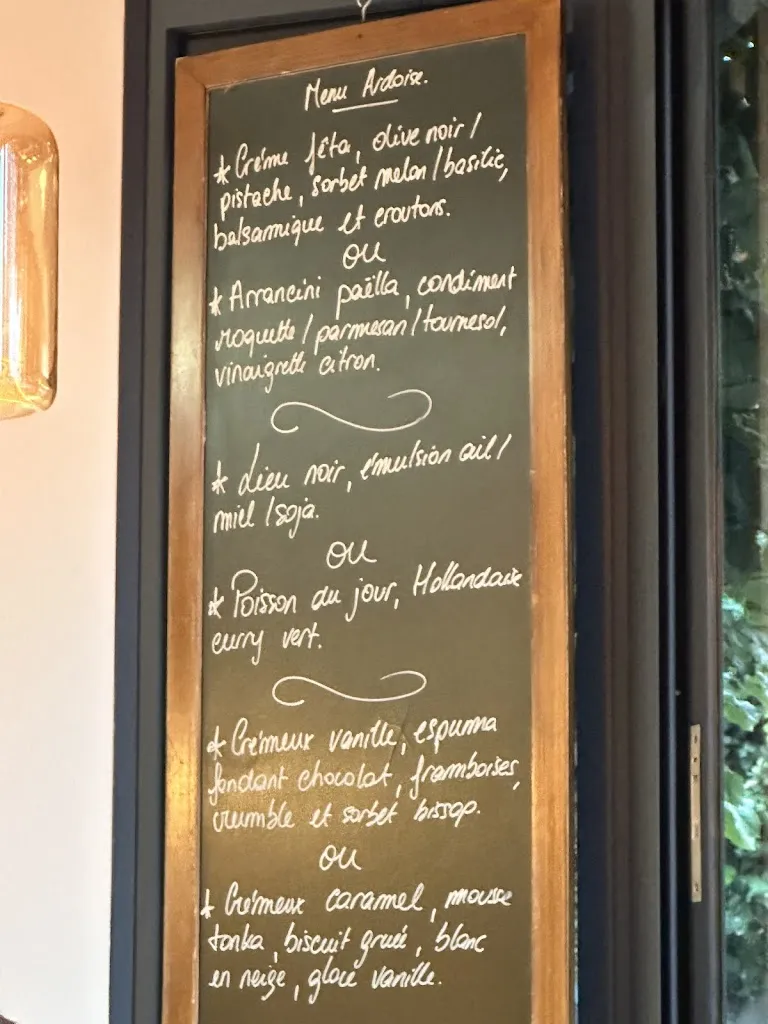 Menu Ardoise.
* Crème fêta, olive noir /
pistache, sorbet melon / basilic,
balsamique et croutons.
OU
* Arrancini paëlla, condiment
roquette / parmesan / tournesol,
vinaigrette citron.
* Lieu noir, émulsion ail /
miel / soja.
OU
* Poisson du jour, Hollandaise
curry vert.
* Crémeux vanille, espuma
fondant chocolat, framboises,
crumble et sorbet bissap.
OU
* Crémeux caramel, mousse
tonka, biscuit grué, blanc
en neige, glace vanille.